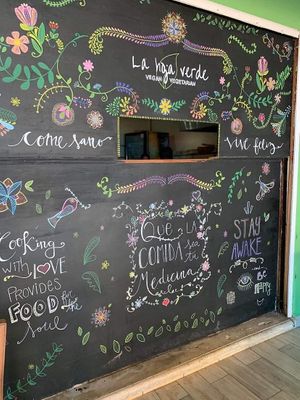 La hoja verde
VEGAN & VEGETARIAN
Come sano
Vive feliz
Cooking
with LOVE
PROVIDES
FOOD for the
Soul
Que la
COMIDA
sea tu
Medicina
STAY
AWAKE
Be
Happy